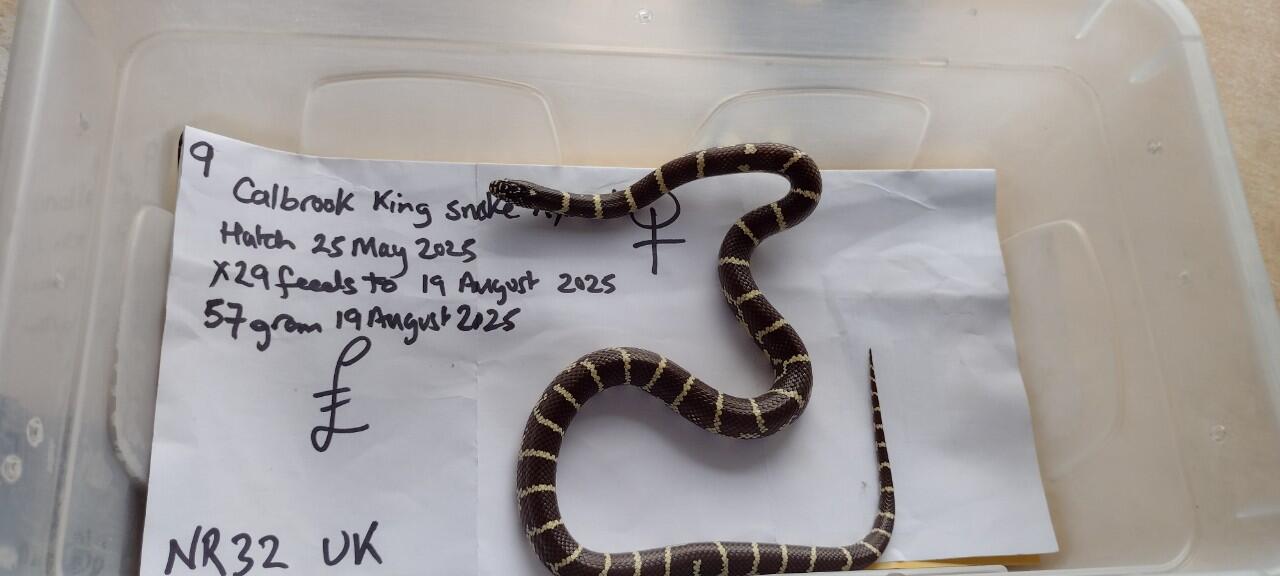 9
Calbrook King snake
Hatch 25 May 2025
X29 feeds to 19 August 2025
57 gram 19 August 2025
£
♀
NR32 UK